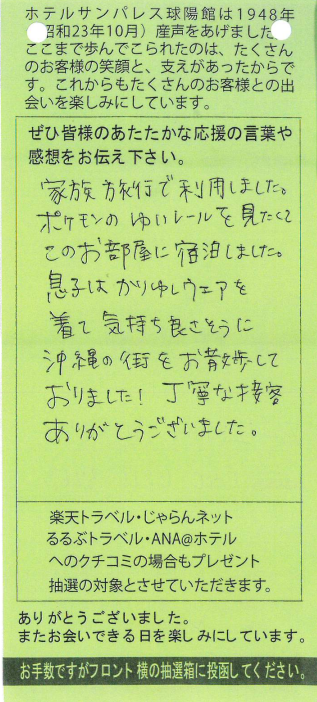 ホテルサンパレス球陽館は1948年
昭和23年10月）産声をあげました
ここまで歩んでこられたのは、たくさん
のお客様の笑顔と、支えがあったからで
す。これからもたくさんのお客様との出
会いを楽しみにしています。
ぜひ皆様のあたたかな応援の言葉や
感想をお伝え下さい。
家族旅行で利用しました。
ポケモンの ゆいレールを見たくて
このお部屋に宿泊しました。
息子は かりゆしウェアを
着て 気持ち良さそうに
沖縄の街をお散歩して
おりました! 丁寧な接客
ありがとうございました。
楽天トラベル・じゃらんネット
るるぶトラベル・ANA@ホテル
へのクチコミの場合もプレゼント
抽選の対象とさせていただきます。
ありがとうございました。
またお会いできる日を楽しみにしています。
お手数ですがフロント横の抽選箱に投函してください。